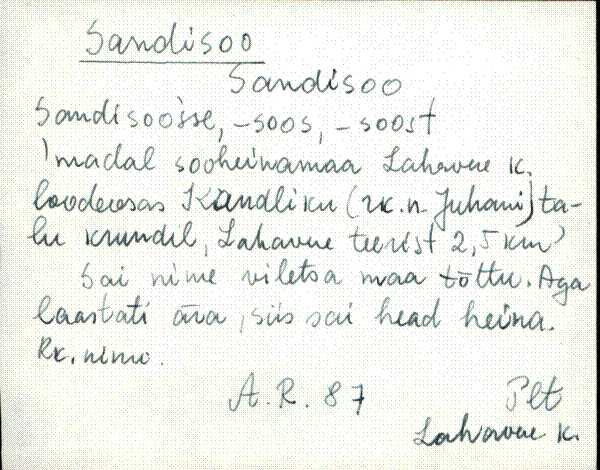 Sandisoo
Sandisoo
Sandisoosse, -soos, -soost
'madal sooheinamaa Lahavere k.
loodeosas Kandliku (rk.n. Juhani) ta-
lu krundil, Lahavere teerist 2,5 km'
Sai nime viletsa maa tõttu. Aga
laastati ära, siis sai head heina.
Rk. nimi.
A. R. 87 Plt
Lahavere k.